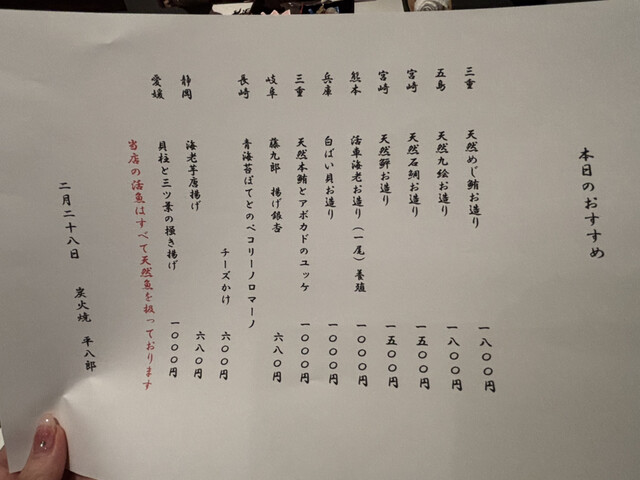 本日のおすすめ
三重 天然めじ鮪お造り 一八〇〇円
五島 天然九絵お造り 一八〇〇円
宮崎 天然石鯛お造り 一五〇〇円
宮崎 天然鮃お造り 一五〇〇円
熊本 活車海老お造り(一尾)養殖 一〇〇〇円
兵庫 白ばい貝お造り 一〇〇〇円
三重 天然本鮪とアボカドのユッケ 一〇〇〇円
岐阜 藤九郎 揚げ銀杏 六八〇円
長崎 青海苔ぽてとのペコリーノロマーノ
チーズかけ 六〇〇円
静岡 海老芋唐揚げ 六八〇円
愛媛 貝柱と三ツ葉の掻き揚げ 一〇〇〇円
当店の活魚はすべて天然魚を扱っております
二月二十八日 炭火焼 平八郎